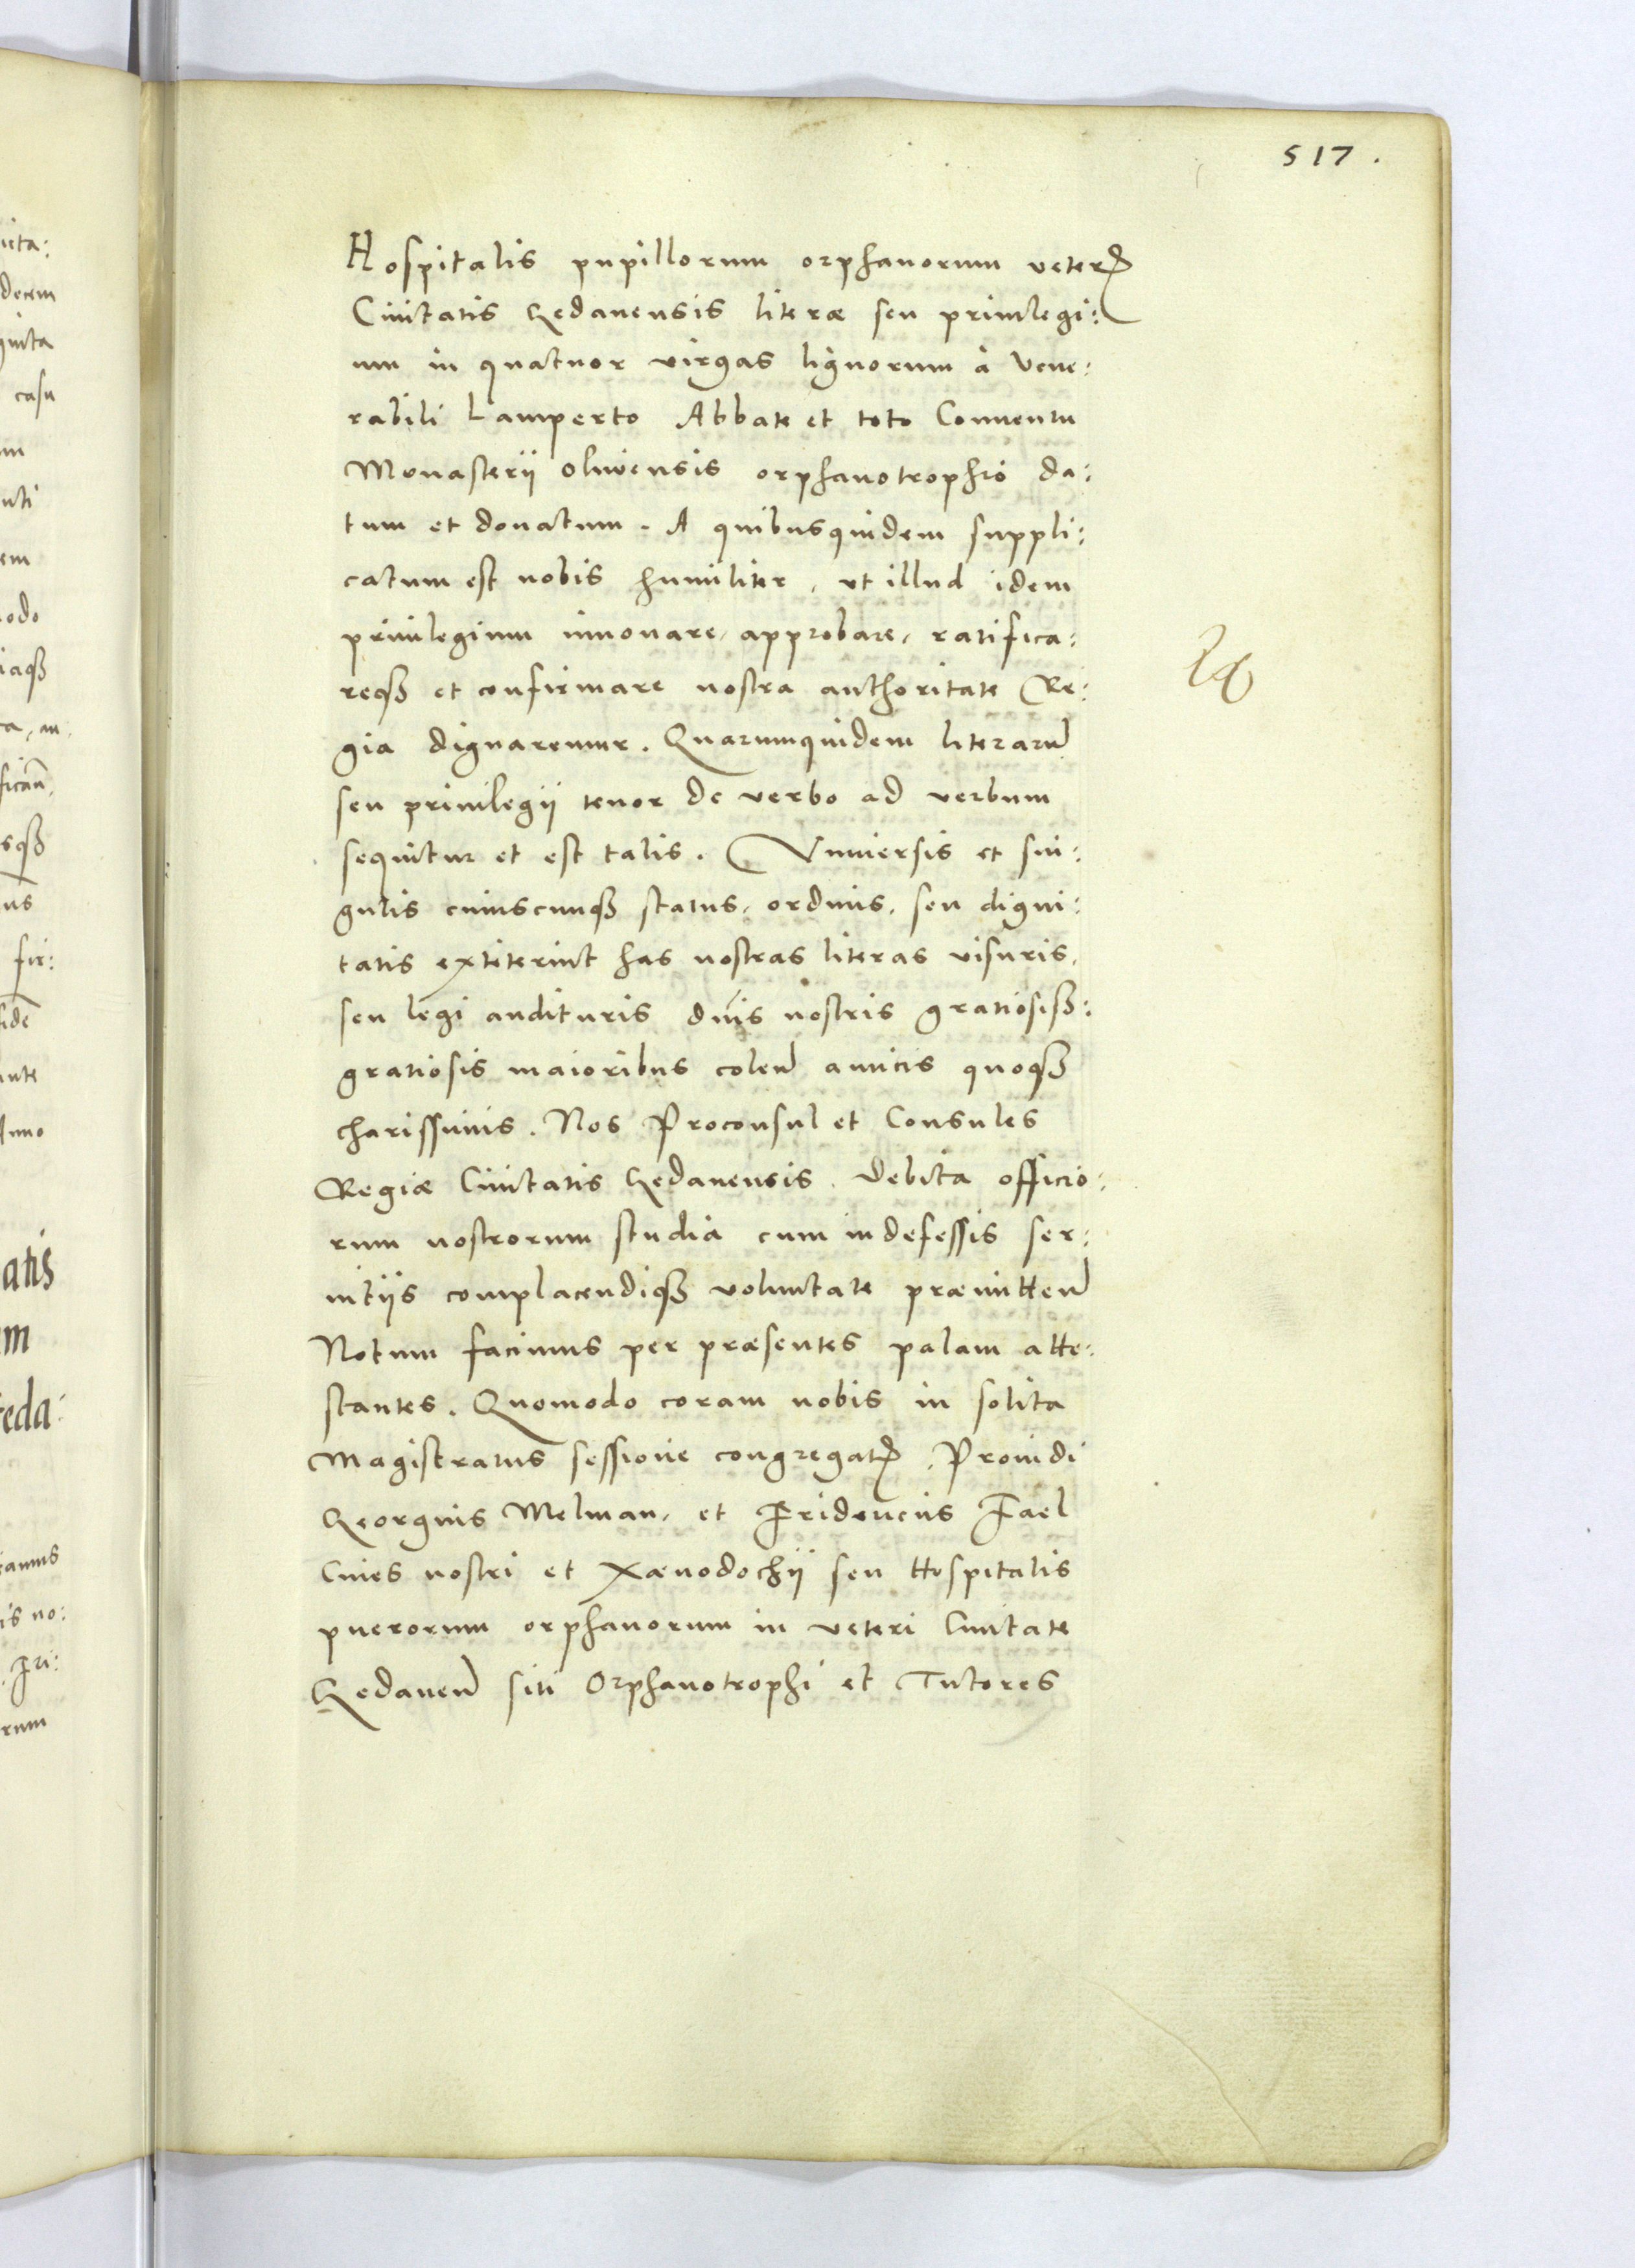 517.
Hospitalis pupillorum orphanorum veteris
Ciuitatis Gedanensis literæ seu priuilegi:
um in quatuor virgas lignorum à Vene:
rabili Lamperto Abbate et toto Conuentu
Monasterii oliuensis orphanotrophio da:
tum et donatum. A quibusquidem suppli:
catum est nobis humiliter, vt illud idem
priuilegium innouare, approbare, ratifica:
reqȝ et confirmare nostra authoritate Re:
gia dignaremur. Quarumquidem literarū
seu priuilegii tenor de verbo ad verbum
sequitur et est talis. Vniuersis et sin:
gulis cuiuscunqȝ status, ordinis, seu digni:
tatis extiterint has nostras literas visuris,
seu legi audituris dnis nostris gratiosiss:
gratiosis maioribus colen amicis quoqȝ
charissimis. Nos Proconsul et Consules
Regiæ Ciuitatis Gedanensis. Debita officio:
rum nostrorum studia cum indefessis ser:
uitiis complacendiqȝ voluntate præmitten
Notum facimus per præsentes palam atte:
stantes. Quomodo coram nobis in solita
Magistratus sessione congregatis, Prouidi
Georgius Melman, et Fridericus Fael
Ciues nostri et Xænodochii seu Hospitalis
puerorum orphanorum in veteri Ciuitate
Gedanen siti Orphanotrophi et Tutores